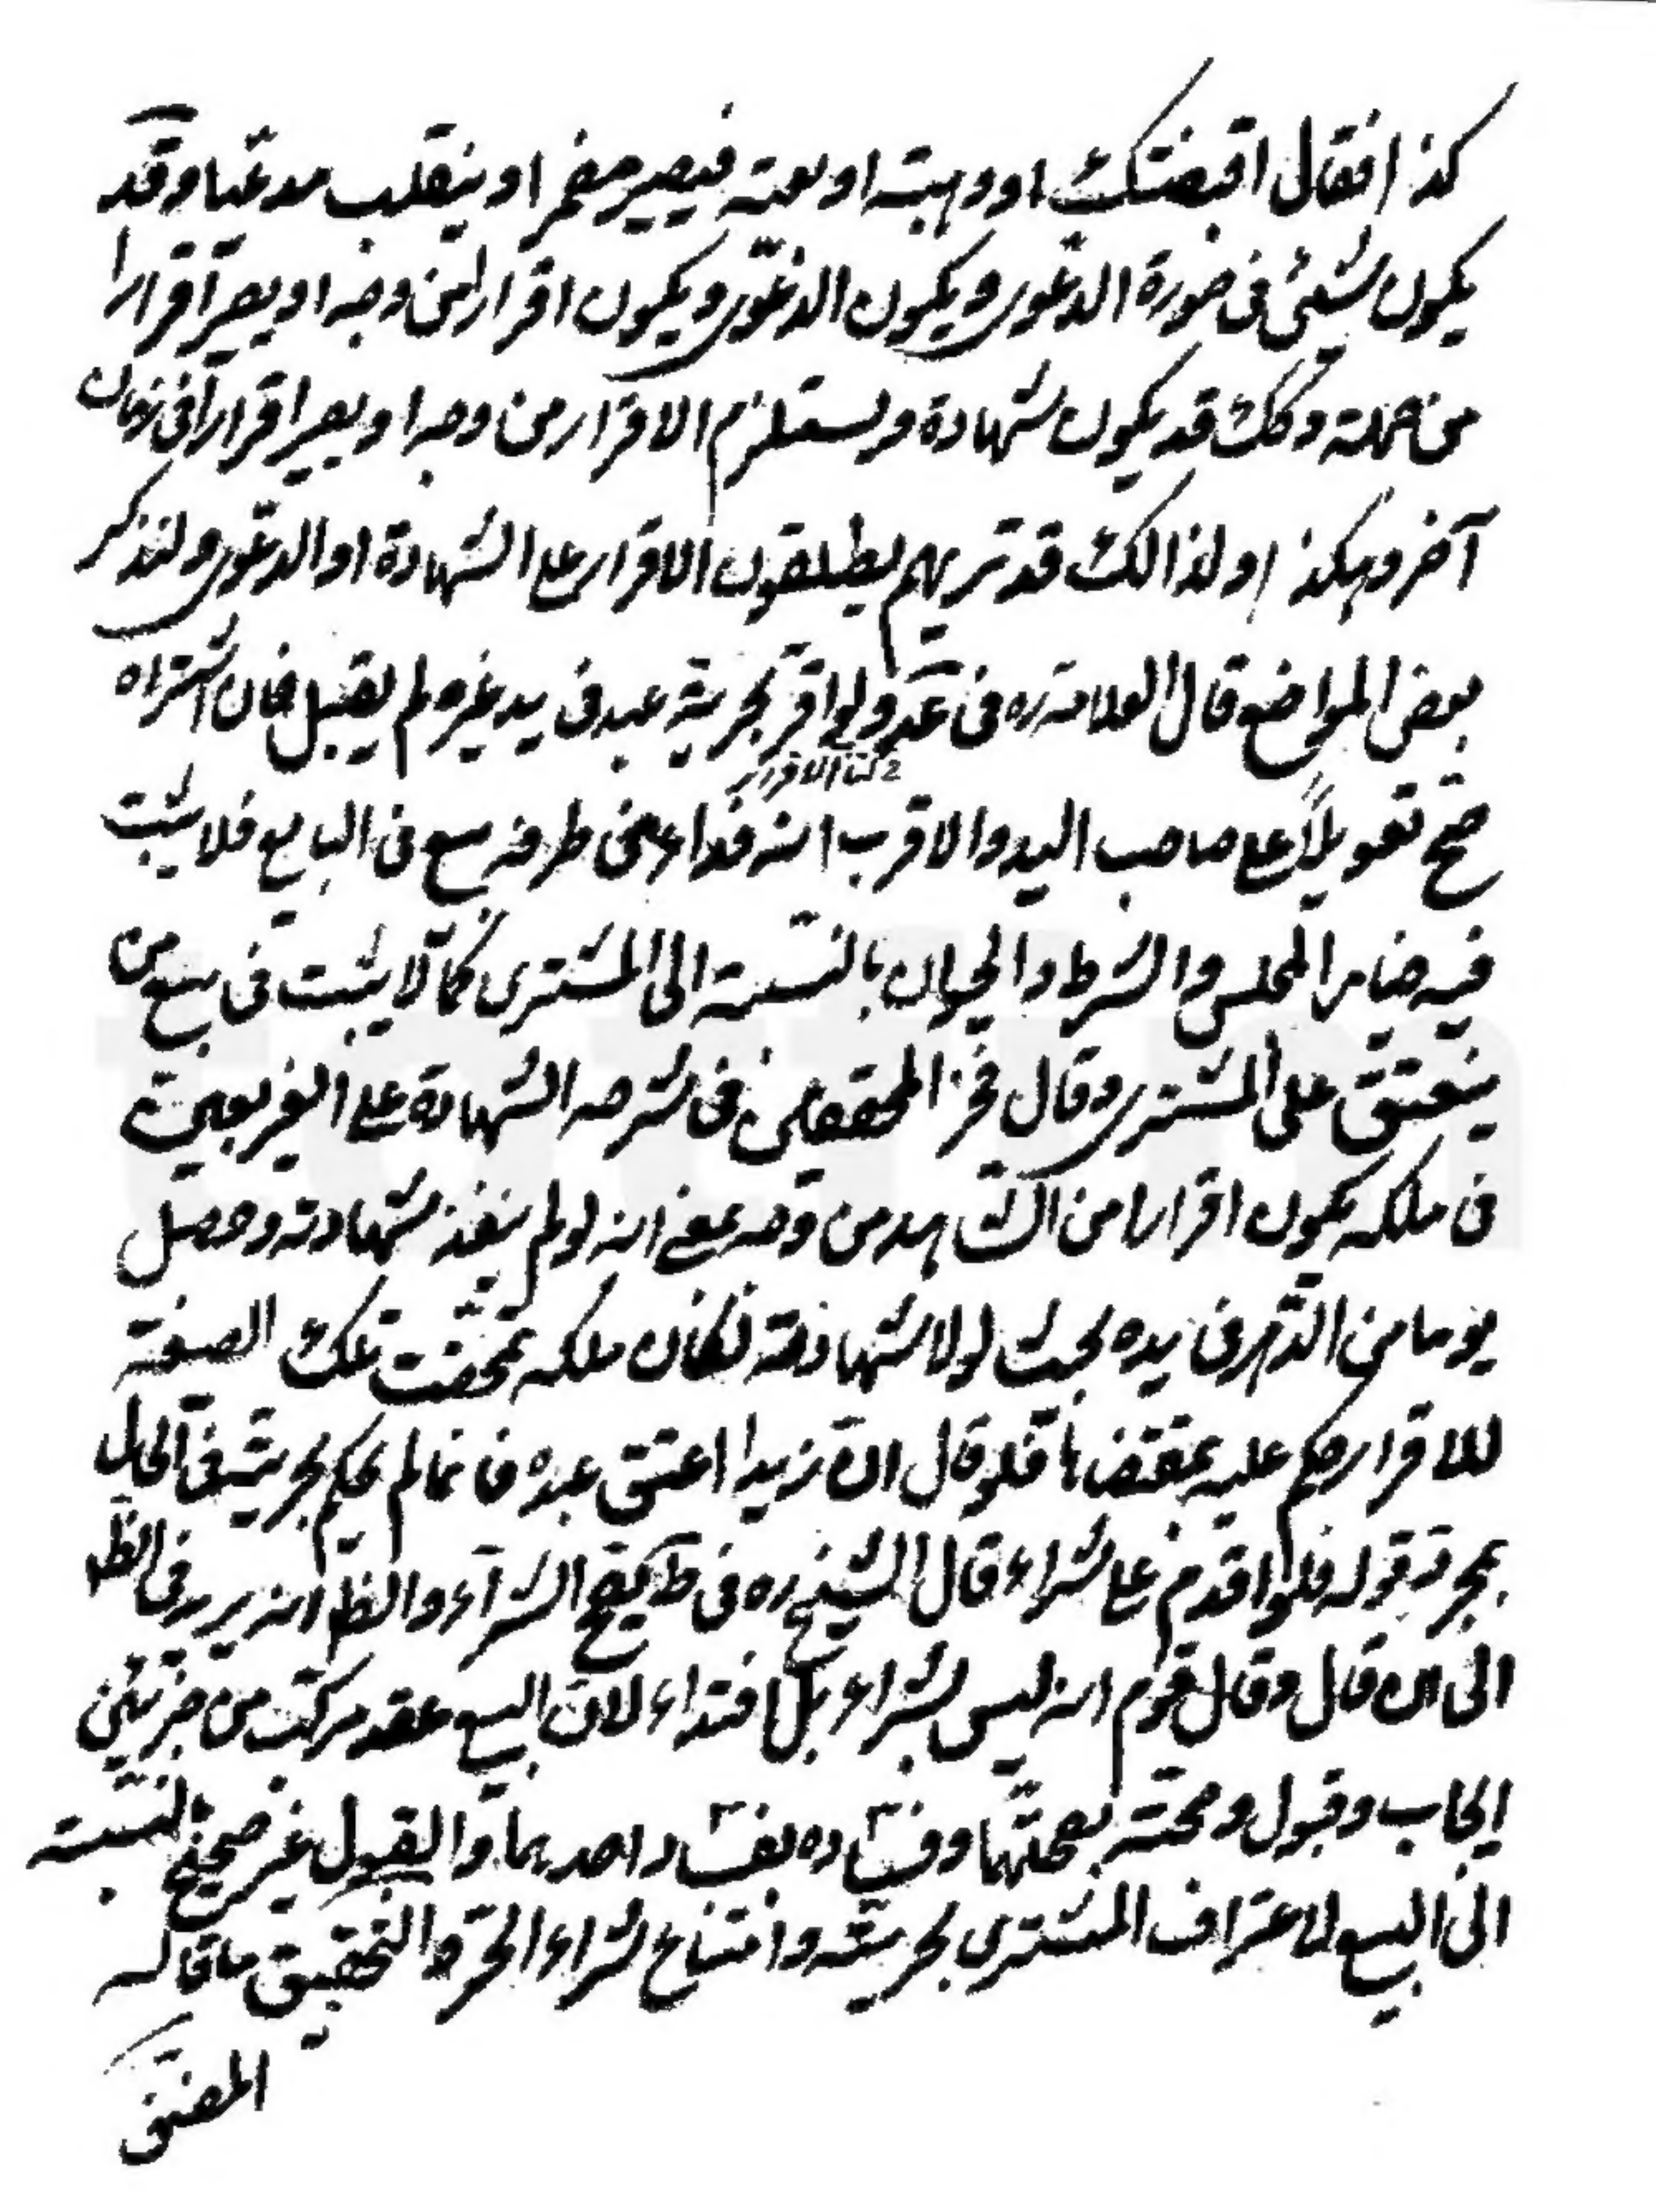 كذا فقال اقبضتك او وهبته او بعته فيصير مقرا وينقلب مدعيا وقد
يكون شيئ في صورة الدعوى ويكون الدعوى ويكون اقرارا من وجه او يصير اقرارا
من جملته وكك قد يكون شهادة ويستلزم الاقرار من وجه او يصير اقرارا في زمان
آخر وهكذا ولذالك قد تريهم يطلقون الاقرار على الشهادة او الدعوى ولنذكر
بعض المواضع قال العلامة ره في عد ولو اقر بحرية عبد في يد غيره لم يقبل فان اشتراه
كتاب الاقرار
صح تعويلا على صاحب اليد والاقرب انه فداء من طرفه بيع في البايع فلا يثبت
فيه خيار المجلس والشرط والحيوان بالنسبة الى المشترى كما لا يثبت في بيع من
ينعتق على المشترى وقال فخر المحققين في شرحه الشهادة على الغير بعين
في ملكه يكون اقرارا من الشاهد من وجه بمعنى انه لو لم ينفذ شهادته وحصل
يوما من الدهر في يده بحيث لولا شهادته لكان ملكه تمحضت تلك الصيغة
للاقرار وحكم عليه بمقتضاها فلو قال ان زيدا اعتق عبده فانما لم يحكم بحريته في الحال
بمجرد قوله فلو اقدم على شراءه قال الشيخ ره في ط يصح الشراء والظم انه يريد في الظم
الى ان قال وقال قوم انه ليس بشراء بل افتداء لان البيع عقد مركب من جزئين
ايجاب وقبول وصحته بصحتهما وفساده بفساد احدهما والقبول غير صحيح بالنسبة
الى البيع لاعتراف المشترى بحريته وامتناع شراء الحر والتحقيق ما قاله
المصنف